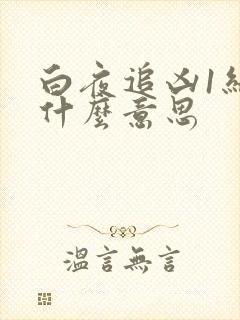 白夜追凶1結
什麼意思
溫言無言